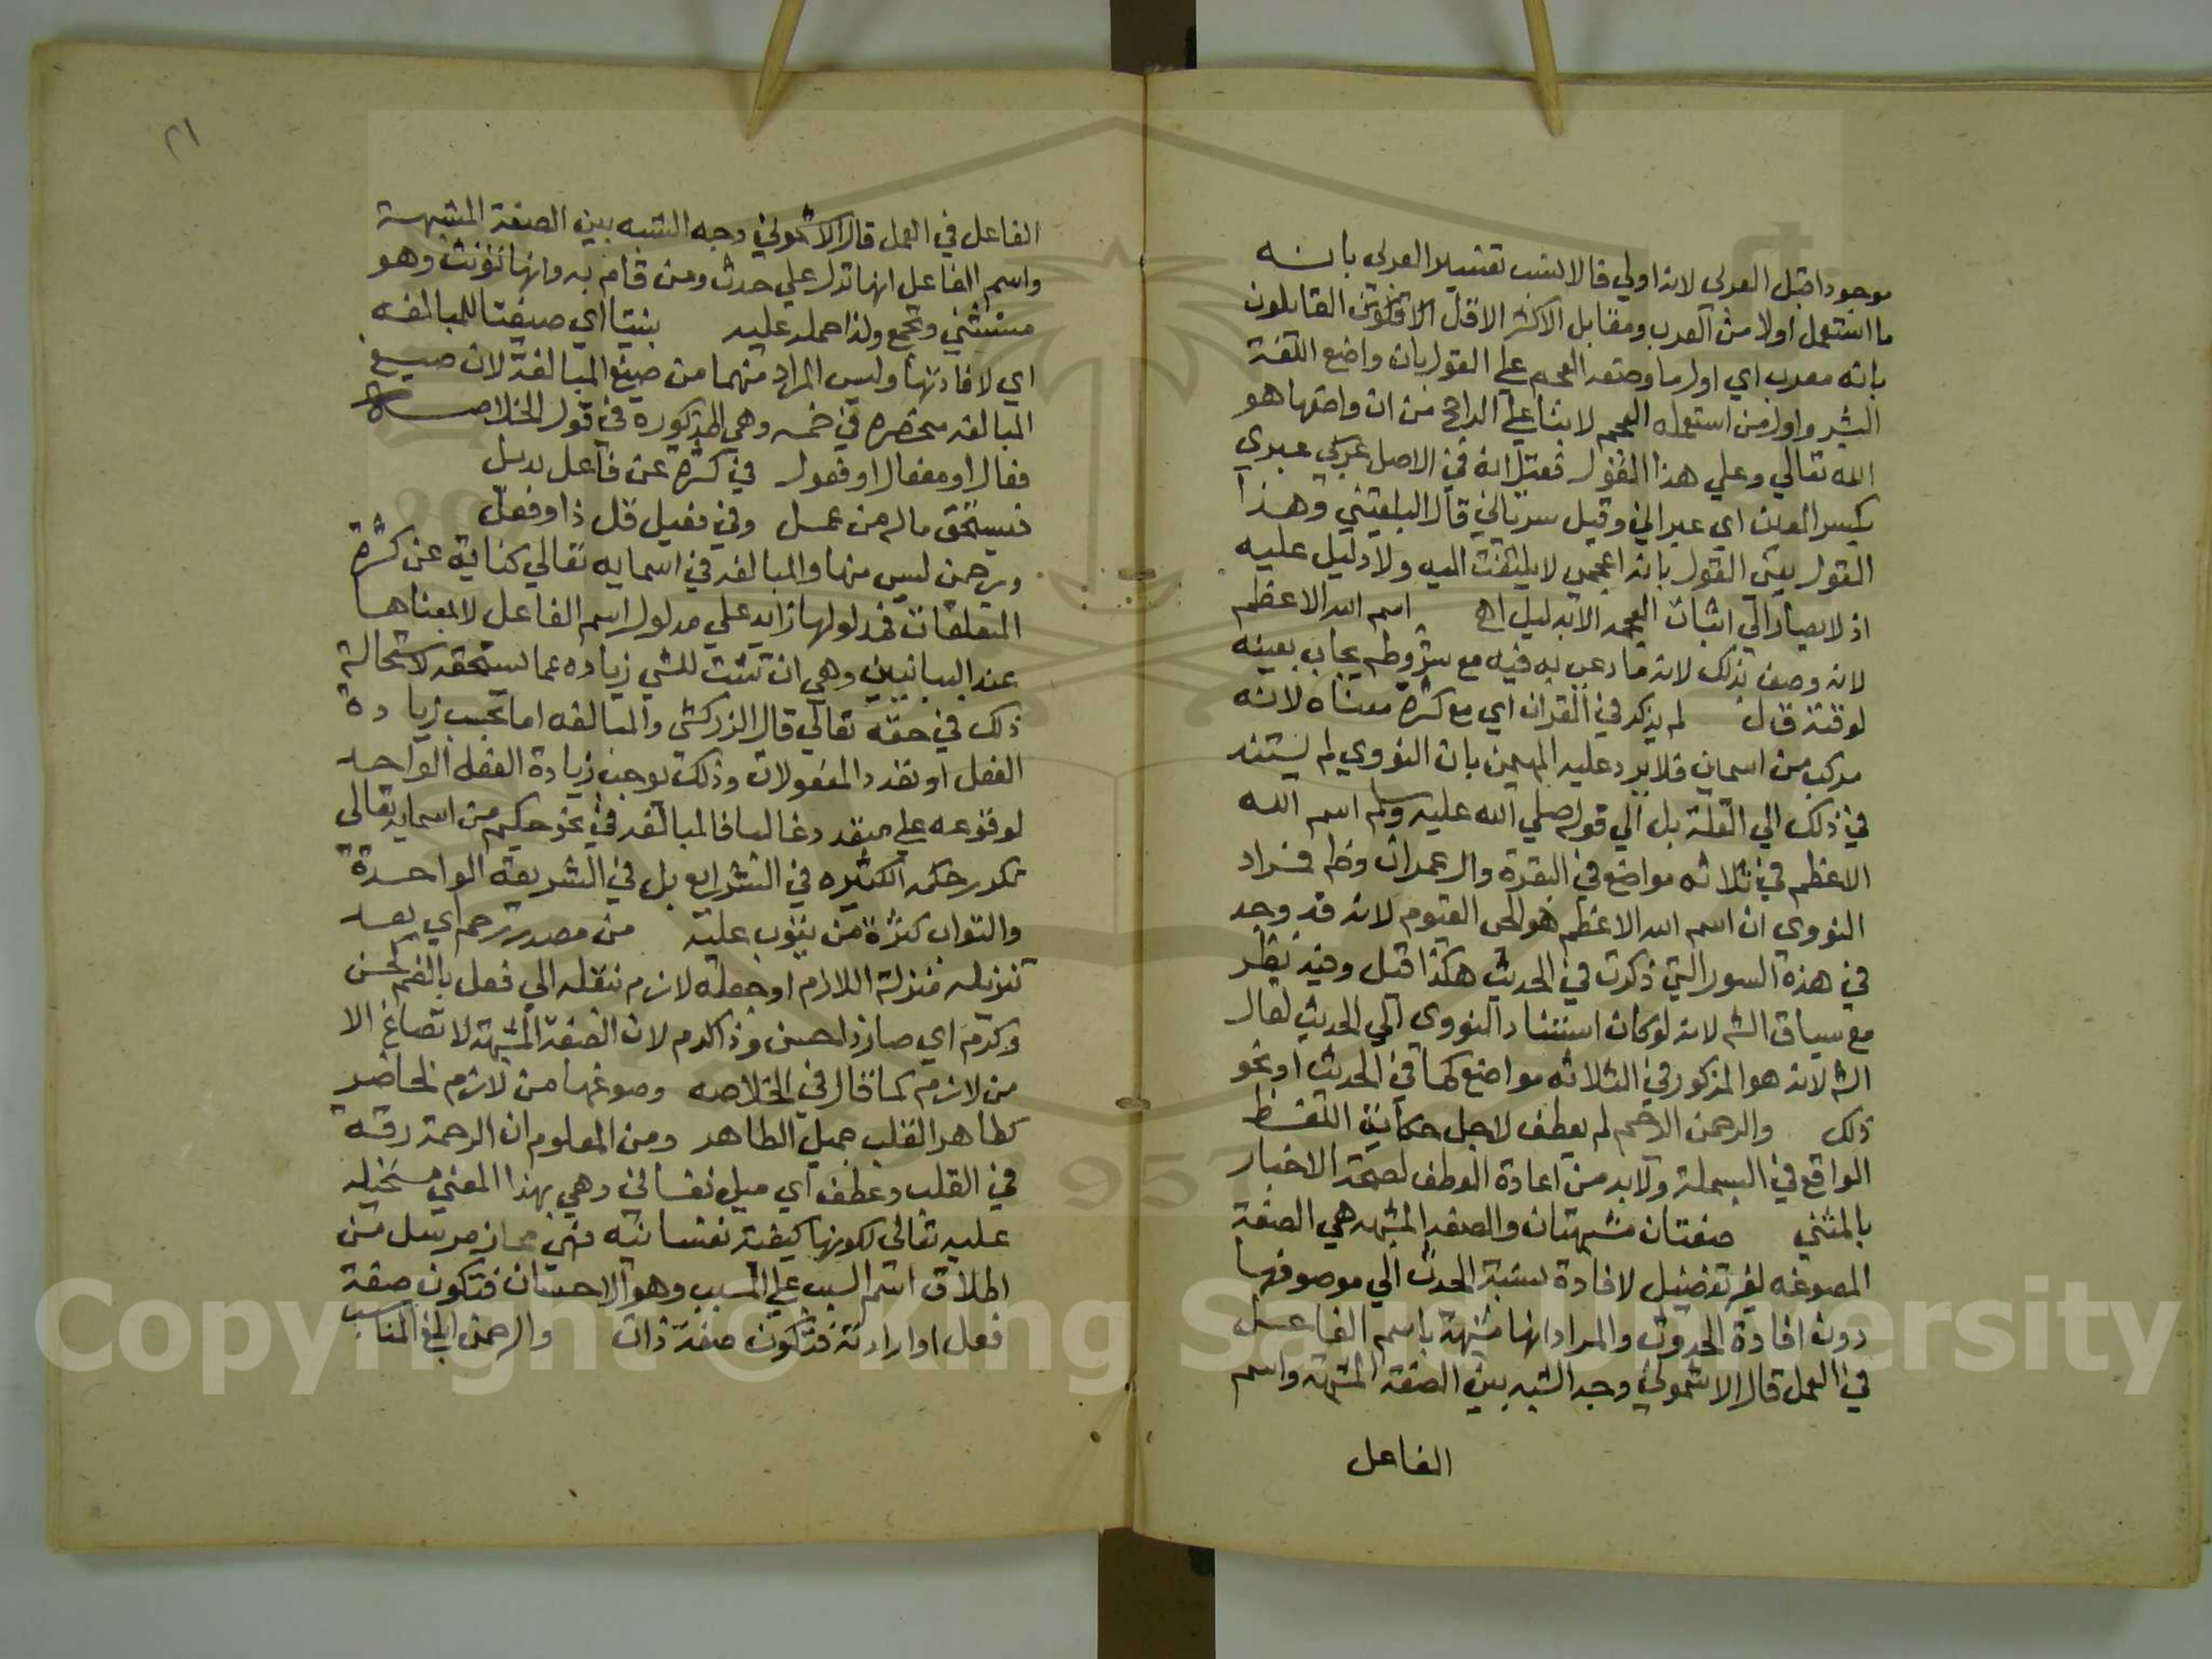 موجودا قبل العربي لانه اولي فالانسب تفسير العربي بانه
ما استعمل اولا من العرب ومقابل الاكثر الاقل الاقلون القايلون
بانه معرب اي اول ما وضعه العجم علي القول بان واضع اللغة
البشر واول من استعمله العجم لا بنا علي الراجح من ان واضعها هو
الله تعالي وعلي هذا القول فقيل انه في الاصل عبري
بكسر العين اي عبراني وقيل سرياني قال البلقيني وهذا
القول يعني القول بانه اعجمي لا يلتفت اليه ولا دليل عليه
اذ لا يصار الي اثبات العجمه الا بدليل اه اسم الله الاعظم
لانه وصف بذلك لانه ما دعي به فيه مع شروطه يجاب بعينه
لوقته قال لم يذكر في القران اي مع كثرة معناه لانه
مركب من اسمان فلا يرد عليه المهيمن بان النووي لم يستند
في ذلك الي القلة بل الي قوله صلي الله عليه وسلم اسم الله
الاعظم في ثلاثه مواضع في البقرة وال عمران وطه فزاد
النووي ان اسم الله الاعظم هو الحي القيوم لانه قد وجد
في هذه السور التي ذكرت في الحديث هكذا قيل وفيه نظر
مع سياق الش لانه لو كان استناد النووي الي الحديث لقال
الش لانه هو المذكور في الثلاثه مواضع كما في الحديث او نحو
ذلك والرحمن الرحيم لم يعطف لاجل حكاية اللفظ
الواقع في البسملة ولا بد من اعادة العطف لصحة الاخبار
بالمثني صفتان مشبهتان والصفه المشبهه هي الصفة
المصوغه لغير تفضيل لافادة نسبة الحدث الي موصوفها
دون افادة الحدوث والمراد انها مشبهة باسم الفاعل
في العمل قال الاشموني وجه الشبه بين الصفة المشبهة واسم
الفاعل
٢١
الفاعل في العمل قال الاشموني وجه الشبه بين الصفة المشبهة
واسم الفاعل انها تدل علي حدث ومن قام به وانها تؤنث وهو
وتثني وتجمع ولذا حمله عليه بنيتا اي صيغتا للمبالغه
اي لافادتها وليس المراد منهما من صيغ المبالغة لان صيغ
المبالغه منحصره في خمسه وهي المذكوره في قول الخلاصه
فعال او مفعال او فعول في كثرة عن فاعل بديل
فيستحق ماله من عمل وفي فعيل قل ذا وفعل
ورحمن ليس منها والمبالغه في اسمايه تعالي كناية عن كثرة
المتعلقات فمدلولها زايد علي مدلول اسم الفاعل لا بمعناها
عند البيانيين وهي ان تثبت للشي زياده عما يستحقه لاستحالة
ذلك في حقه تعالي قال الزركشي والمبالغه اما تحسب زيادة
الفعل او تعدد المفعولات وذلك لا يوجب زيادة الفعل الواحد
لوقوعه علي متعدد غالبا فالمبالغه في نحو حكيم من اسمايه تعالي
تكرر حكمه الكثيره في الشرايع بل في الشريعة الواحدة
والتواب كثرة من يتوب عليه من مصدر رحم اي بعد
تنزيله منزلة اللازم او جعله لازم بنقله الي فعل بالضم كحسن
وكرم اي صار ذا حسن وذا كرم لان الصفة المشبهة لا تصاغ الا
من لازم كما قال في الخلاصه وصوغها من لازم لحاضر
كطاهر القلب جميل الظاهر ومن المعلوم ان الرحمة رقة
في القلب وعطف اي ميل نفساني وهي بهذا المعني مستحيله
عليه تعالي لكونها كيفية نفسانيه فهي مجاز مرسل من
اطلاق اسم السبب علي المسبب وهو الاحسان فتكون صفة
فعل او ارادته فتكون صفة ذات والرحمن ابلغ المناسب
Copyright © King Saud University
1957